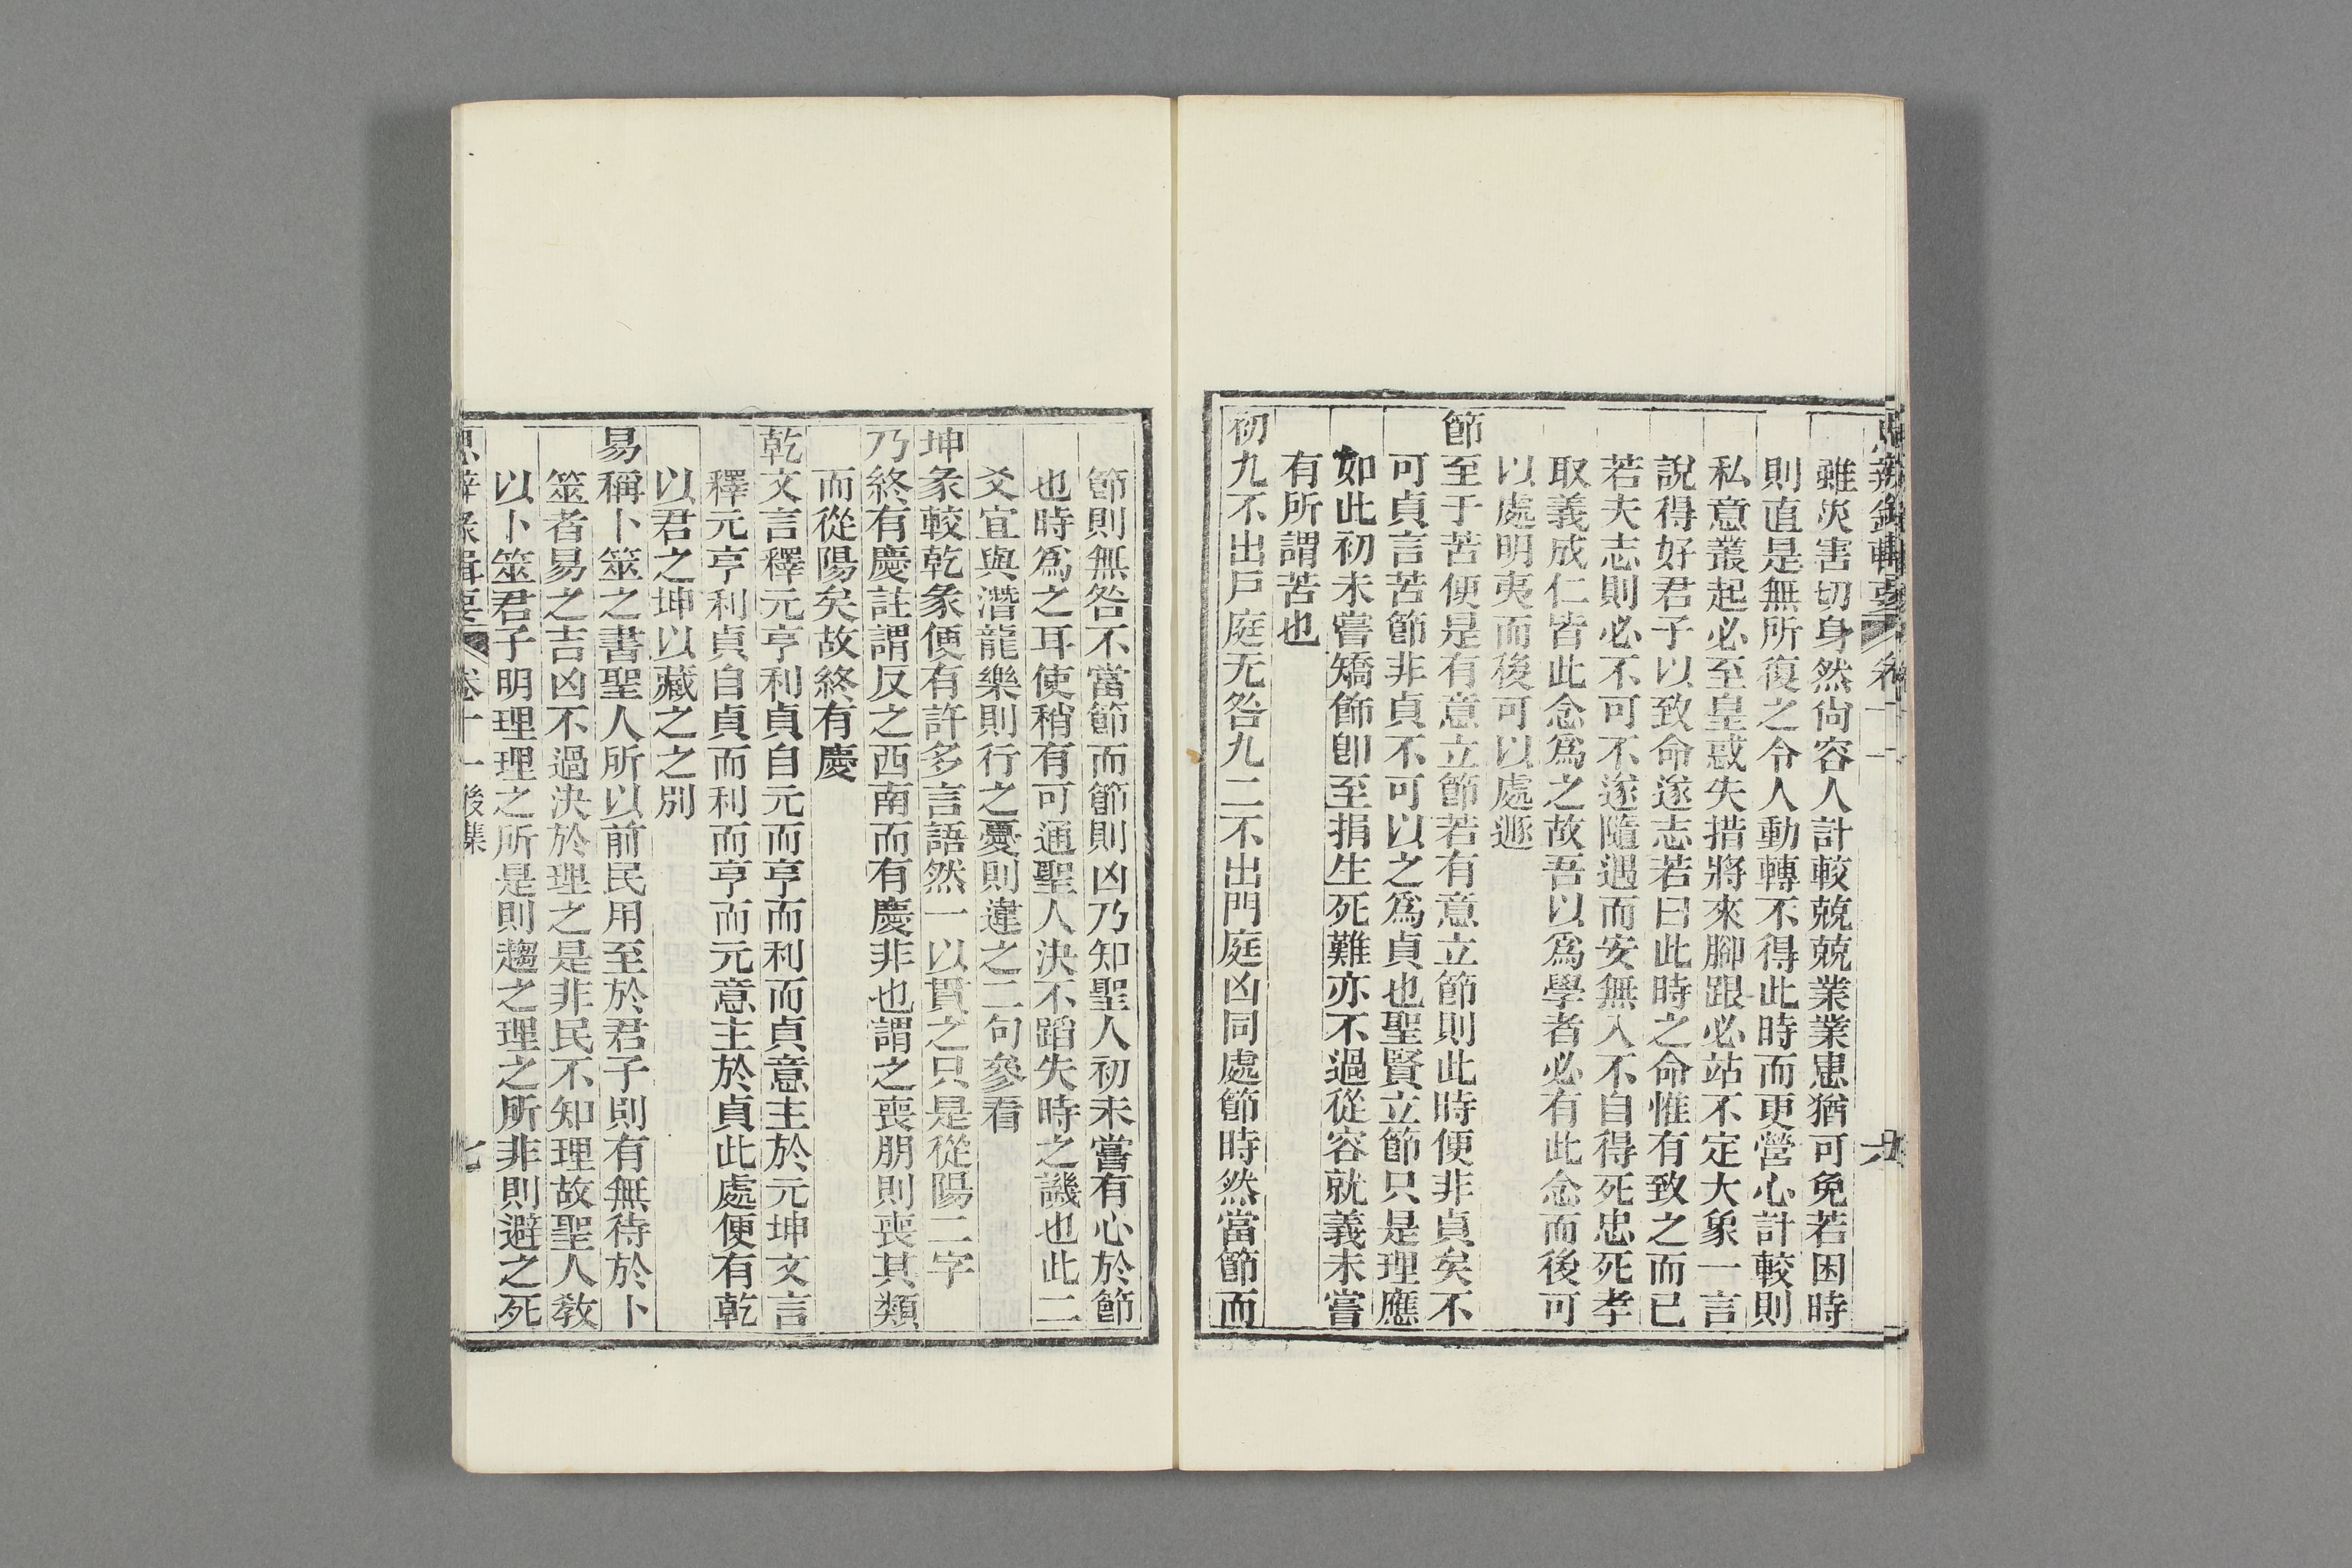 雖災害切身然尙容人計較兢兢業業患猶可免若困時
則直是無所復之令人動轉不得此時而更營心計較則
私意叢起必至皇惑失措將來腳跟必站不定大象一言
說得好君子以致命遂志若曰此時之命惟有致之而已
若夫志則必不可不遂隨遇而安無入不自得死忠死孝
取義成仁皆此念爲之故吾以爲學者必有此念而後可
以處明夷而後可以處遯
節至于苦便是有意立節若有意立節則此時便非貞矣不
可貞言苦節非貞不可以之爲貞也聖賢立節只是理應
如此初未嘗矯飾卽至捐生死難亦不過從容就義未嘗
有所謂苦也
初九不出戸庭无咎九二不出門庭凶同處節時然當節而
節則無咎不當節而節則凶乃知聖人初未嘗有心於節
也時爲之耳使稍有可通聖人決不蹈失時之譏也此二
爻宜與潛龍樂則行之憂則違之二句參看
坤彖較乾彖便有許多言語然一以貫之只是從陽二字
乃終有慶註謂反之西南而有慶非也謂之喪朋則喪其類
而從陽矣故終有慶
乾文言釋元亨利貞自元而亨而利而貞意主於元坤文言
釋元亨利貞自貞而利而亨而元意主於貞此處便有乾
以君之坤以藏之之別
易稱卜筮之書聖人所以前民用至於君子則有無待於卜
筮者易之吉凶不過決於理之是非民不知理故聖人敎
以卜筮君子明理理之所是則趨之理之所非則避之死
思辨錄輯要 卷十一 後集 七